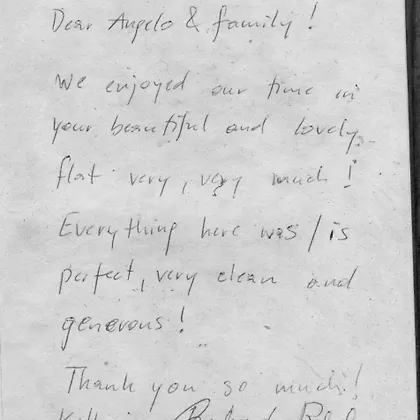 Dear Angelo & family!
We enjoyed our time in
your beautiful and lovely
flat very, very much!
Everything here was/is
perfect, very clean and
generous!
Thank you so much!